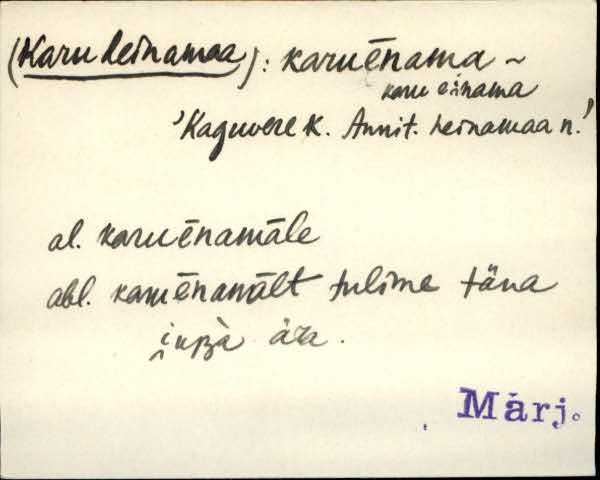 (Karu heinamaa): karuēnama ~
karu einama
'Kaguvere k. Annit. heinamaa n.'
al. karuēnamāle
abl. karuēnamālt tulime täna
ära.
Märj.